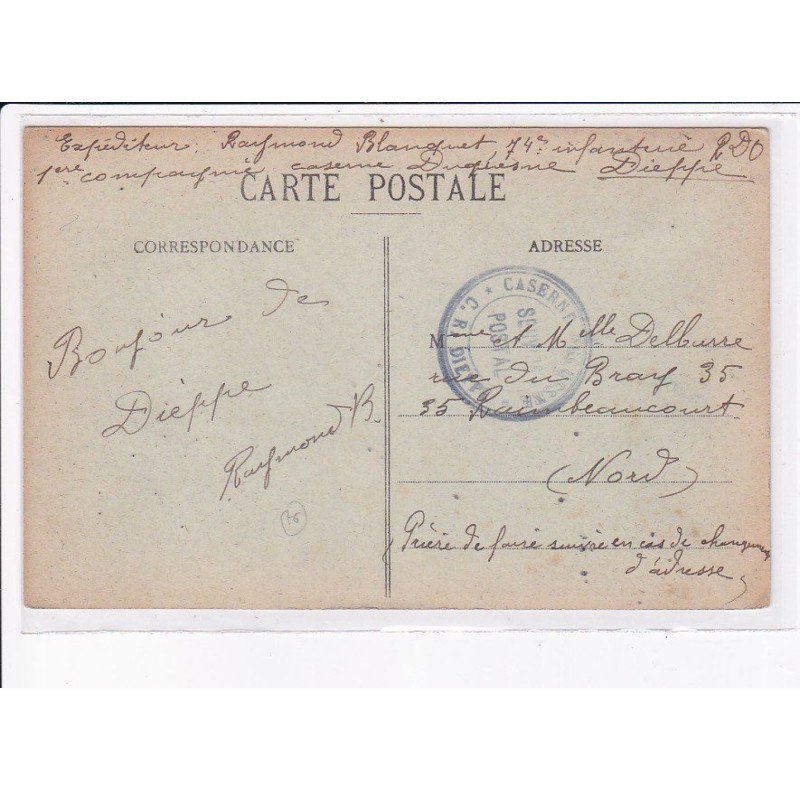 Expéditeur: Raymond Blanquet, 74e infanterie
1ere compagnie caserne Duquesne Dieppe
CARTE POSTALE
CORRESPONDANCE
Bonjour de
Dieppe
Raymond B.
76
ADRESSE
★ CASERNE
SERVICE
POSTAL
DIEPPE
Mme et Melle Delburre
rue du Bray 35
35 Raimbeaucourt
(Nord)
Prière de faire suivre en cas de changement
d'adresse